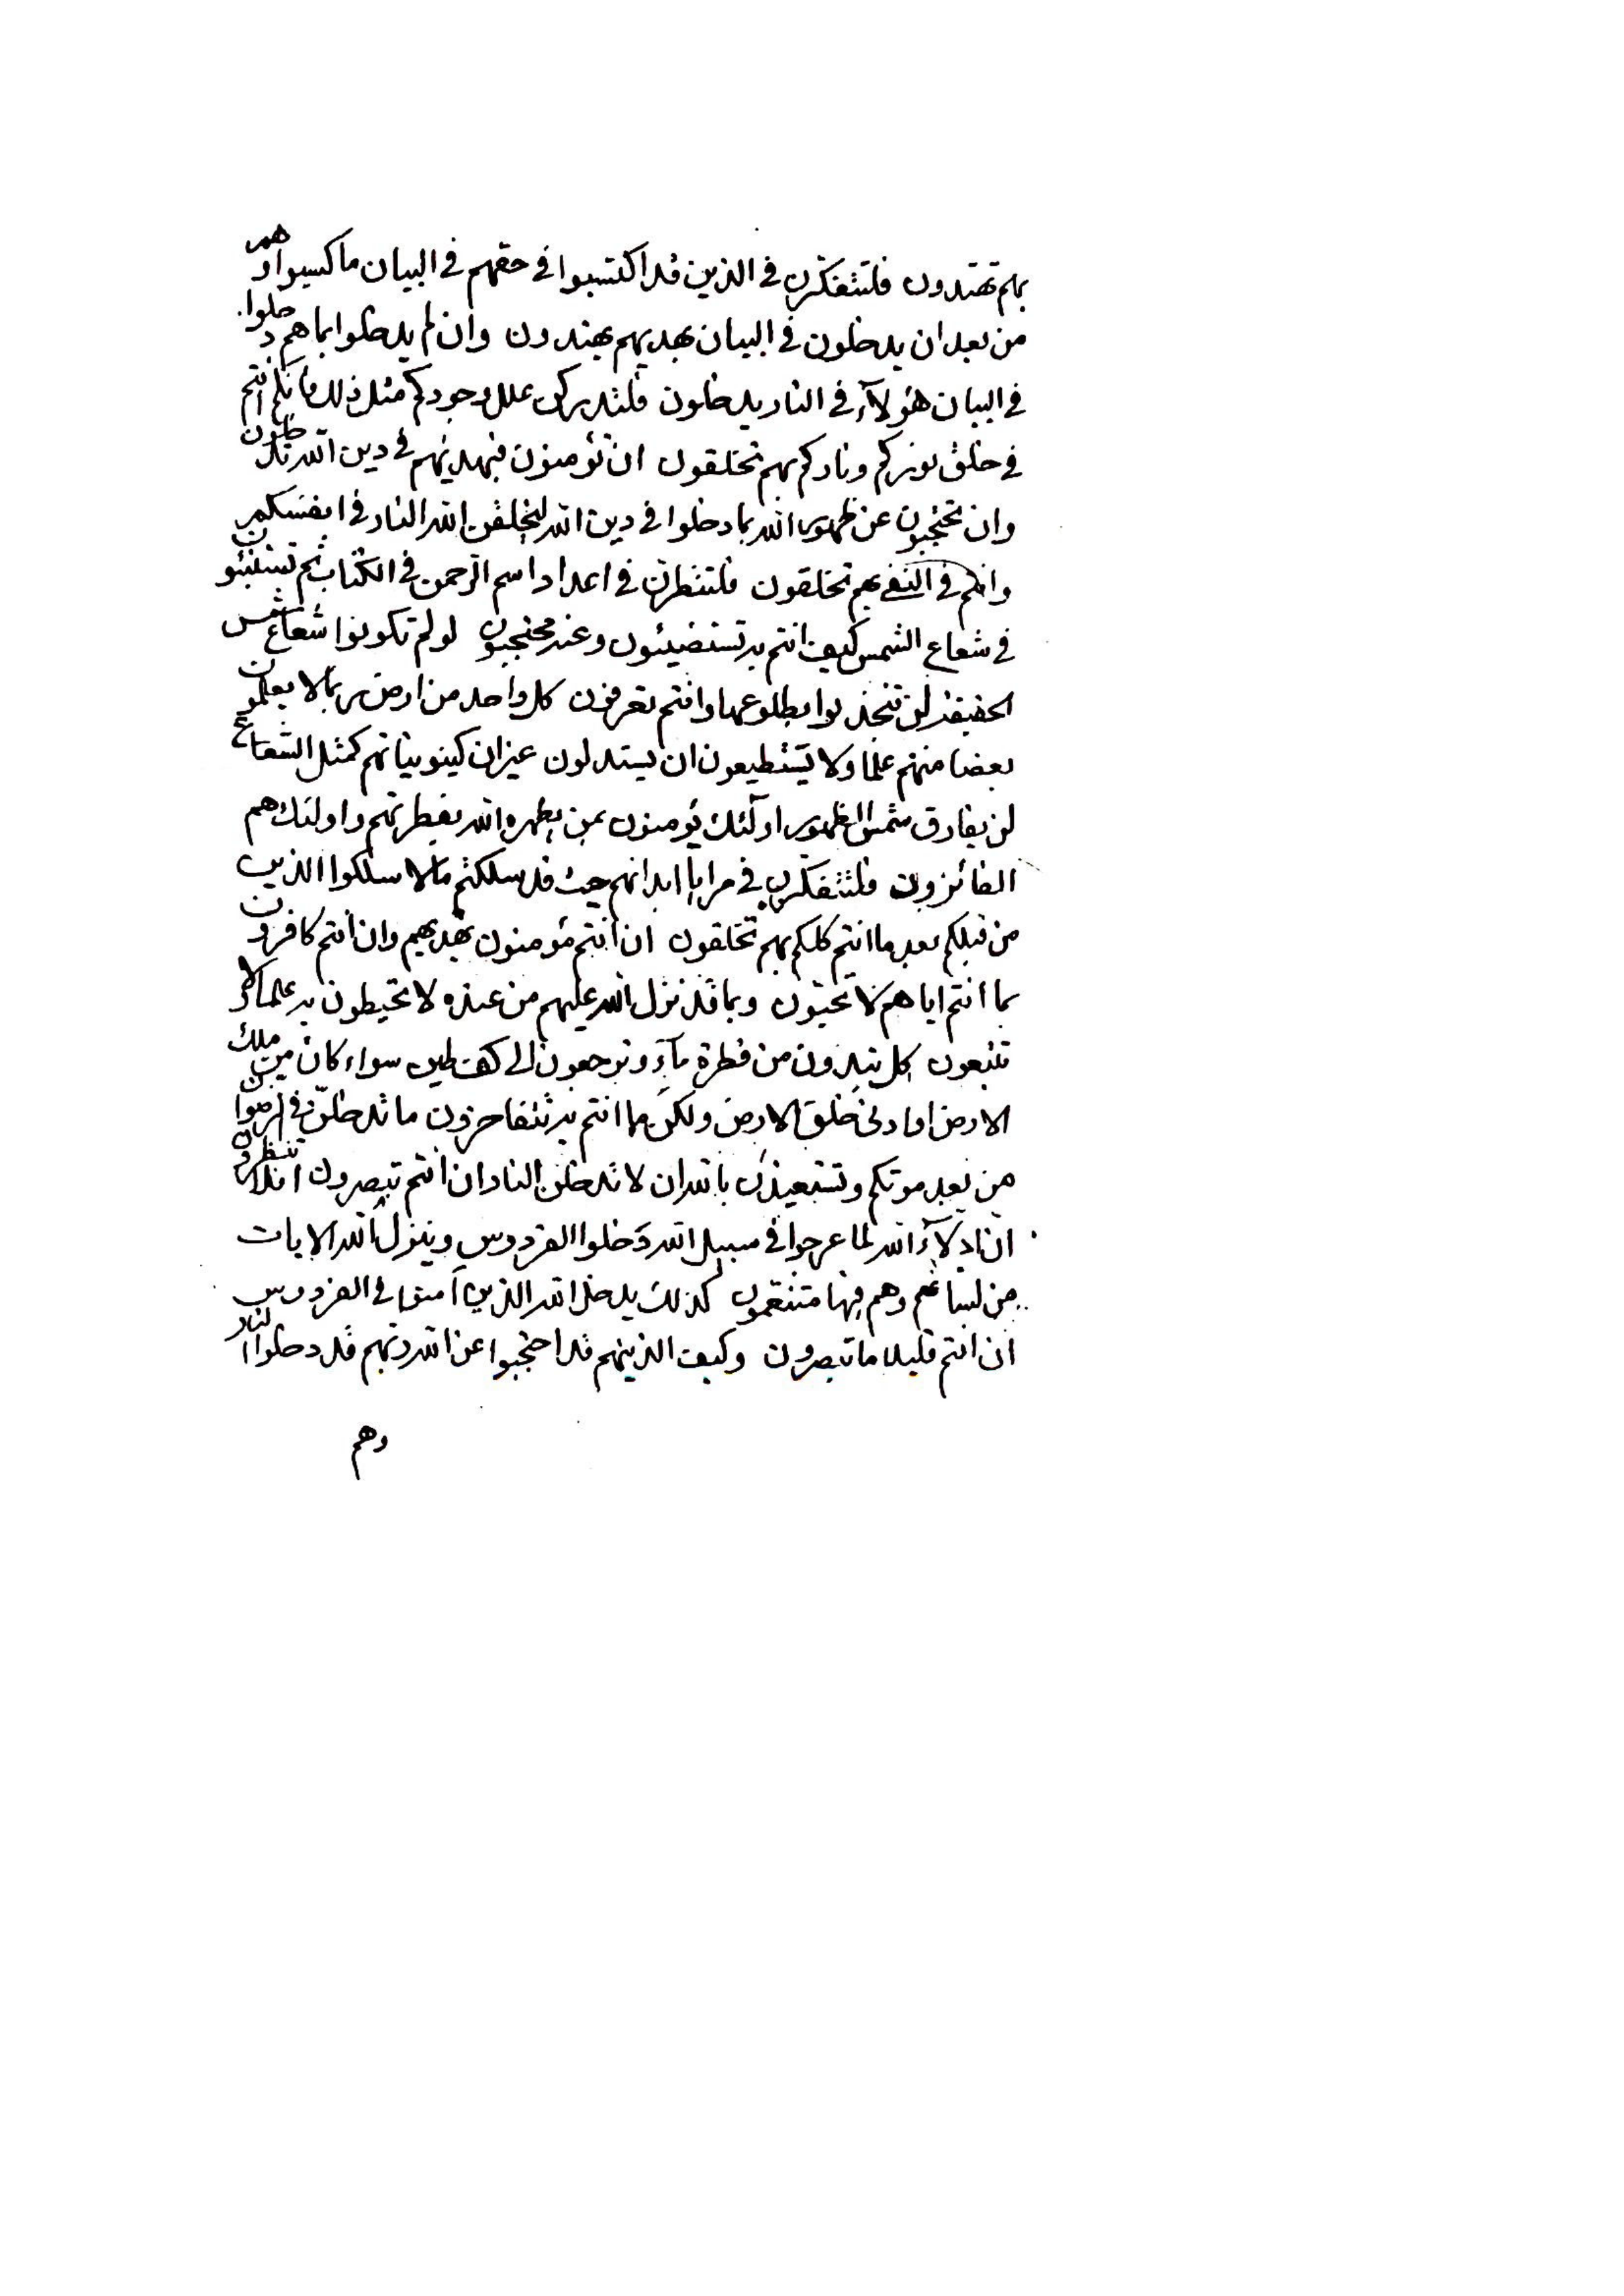 بهم تهتدون فلتتفكرن في الذين قد اكتسبوا في حقهم في البيان ما كسبوا وهم
من بعد ان يدخلون في البيان بهديهم يهتدون وان لم يدخلوا بما هم دخلوا
في البيان هؤلآء في النار يدخلون فلتدركن علل وجودكم مثل ذلك فانكم انتم
في خلق نوركم وناركم بهم تخلقون ان تؤمنون فبهديهم في دين الله تدخلون
وان تحتجبون عن ظهور الله بما دخلوا في دين الله ليخلقن الله النار في انفسكم
وانكم في النفي بهم تخلقون فلتنظرن في اعداد اسم الرحمن في الكتاب ثم تستنبئون
في شعاع الشمس كيف انتم به تستضيئون وعنه محتجبون لو لم تكونوا شعاع شمس
الحقيقة لن تنجذبوا بطلوعها وانتم تعرفون كل واحد من ارض ربما لا يعلمون
بعضا منهم علما ولا يستطيعون ان يستدلون غيران كينونياتهم كمثل الشعاع
لن يفارق شمس الظهور اولئك يؤمنون بمن يظهره الله بفطرتهم واولئك هم
الفائزون فلتتفكرن في مرايا ابدانهم حيث قد سلكتم ما لا سلكوا الذين
من قبلكم بعد ما انتم كلكم بهم تخلقون ان انتم مؤمنون بهديهم وان انتم كافرون
بما انتم اياهم لا تحبون وبما قد نزل الله عليهم من عنده لا تحيطون به علما ولا
تتبعون كل تبدون من قطرة مآء وترجعون الى كف طين سواء كان من ملك
الارض او ادنى خلق الارض ولكن مما انتم به تتفاخرون ما تدخلن في الرضوان
من بعد موتكم وتستعيذن بالله ان لا تدخلن النار ان انتم تبصرون افلا تنظرون
ان ادلآء الله لما عرجوا في سبيل الله دخلوا الفردوس وينزل الله الايات
من لسانهم وهم فيها متنعمون كذلك يدخل الله الذين آمنوا في الفردوس
ان انتم قليلا ما تبصرون وكيف الذينهم قد احتجبوا عن الله ربهم قد دخلوا النار
وهم